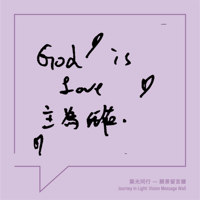 God is
Love
主為
光同行 — 願景留言牆
Journey in Light: Vision Message Wall